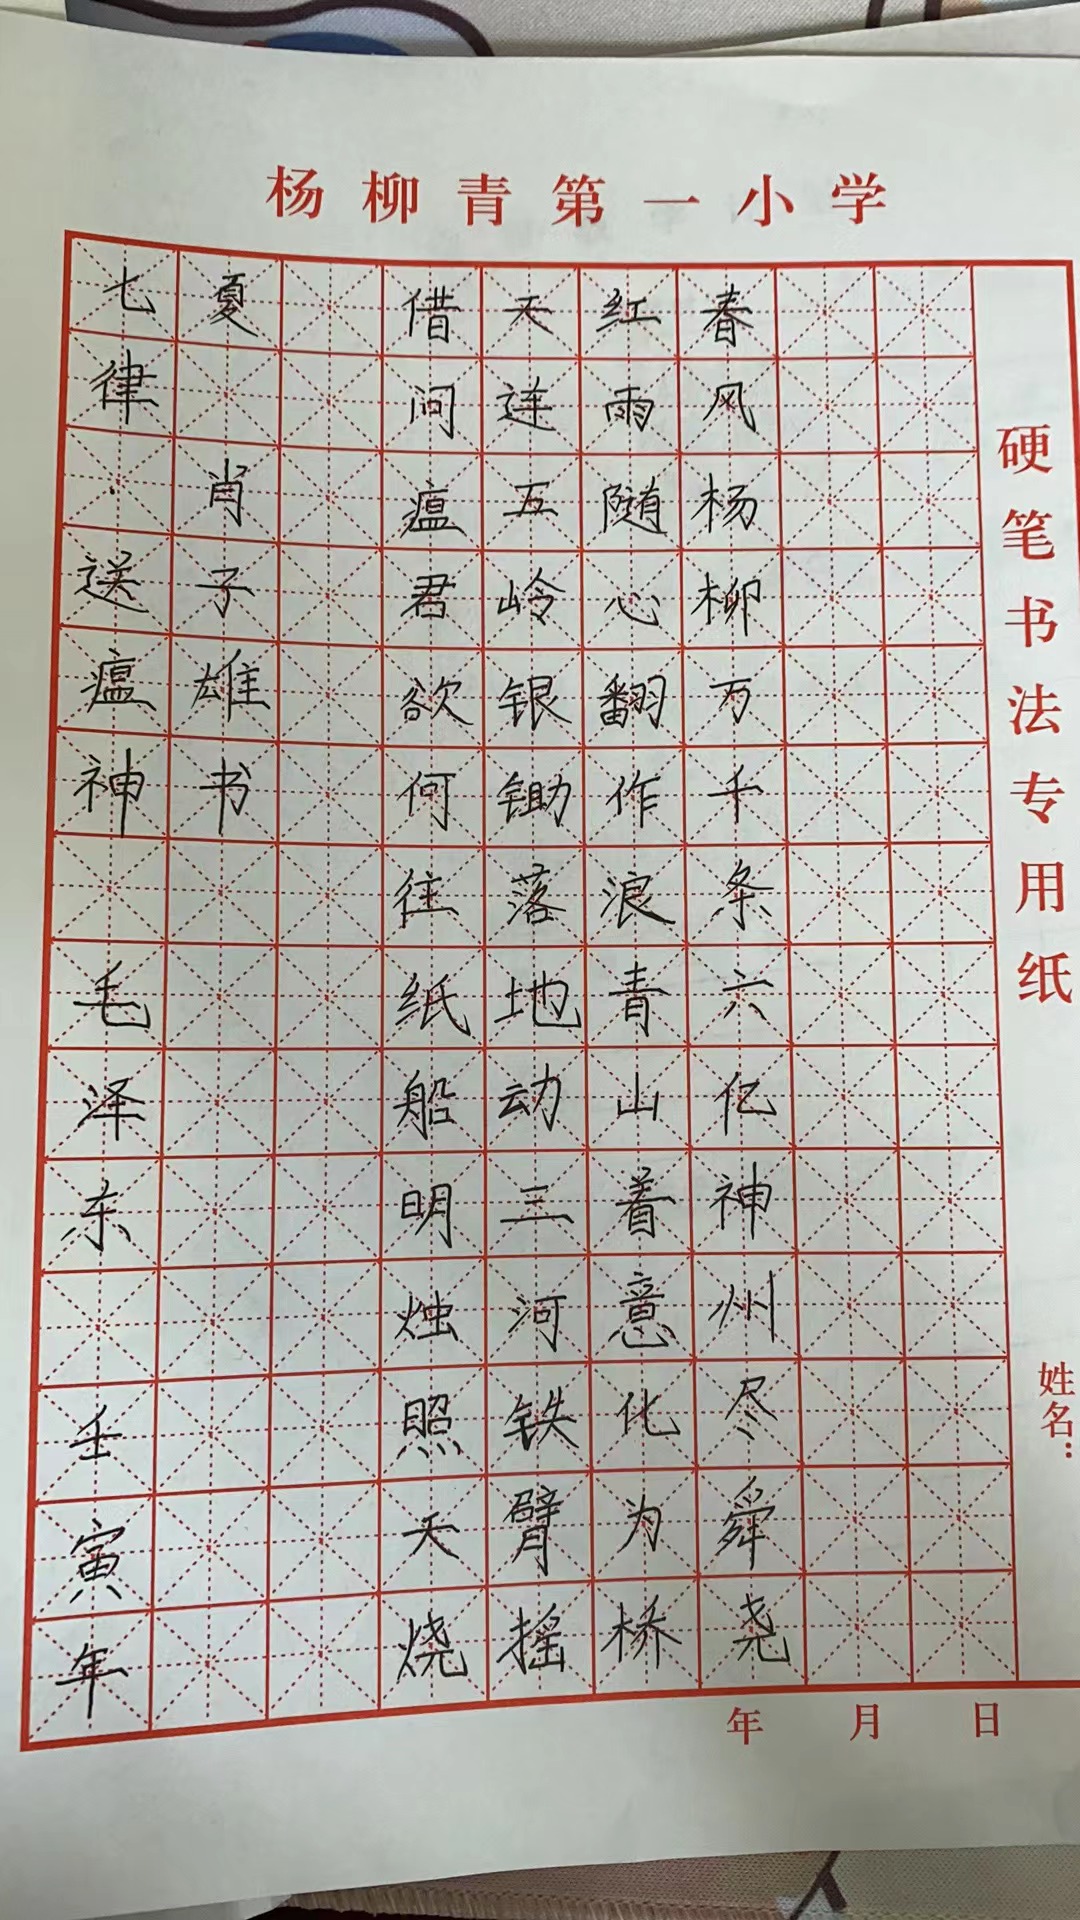 杨柳青第一小学
硬笔书法专用纸
姓名：
春风杨柳万千条六亿神州尽舜尧
红雨随心翻作浪青山着意化为桥
天连五岭银锄落地动三河铁臂摇
借问瘟君欲何往纸船明烛照天烧
七律·送瘟神 毛泽东 壬寅年
夏 肖子雄书
年 月 日